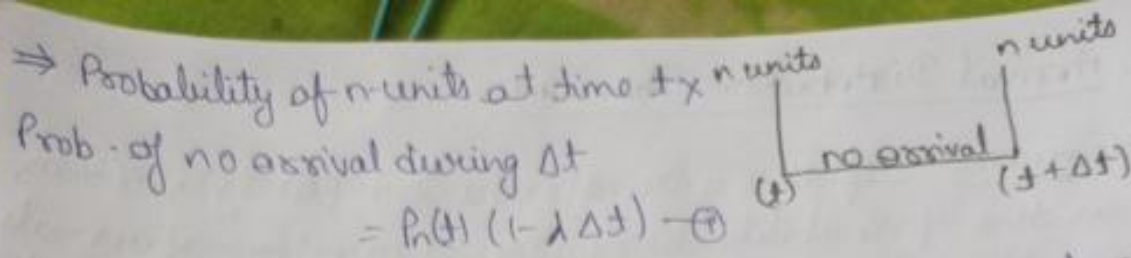 ⇒ Probability of n-units at time t x
Prob. of no arrival during Δt
= Pn(t) (1-λΔt) —
n units
n units
no arrival
(t)
(t+Δt)